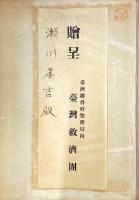 瀬川孝吉殿
贈呈
臺灣總督府警務局内
臺灣救濟團